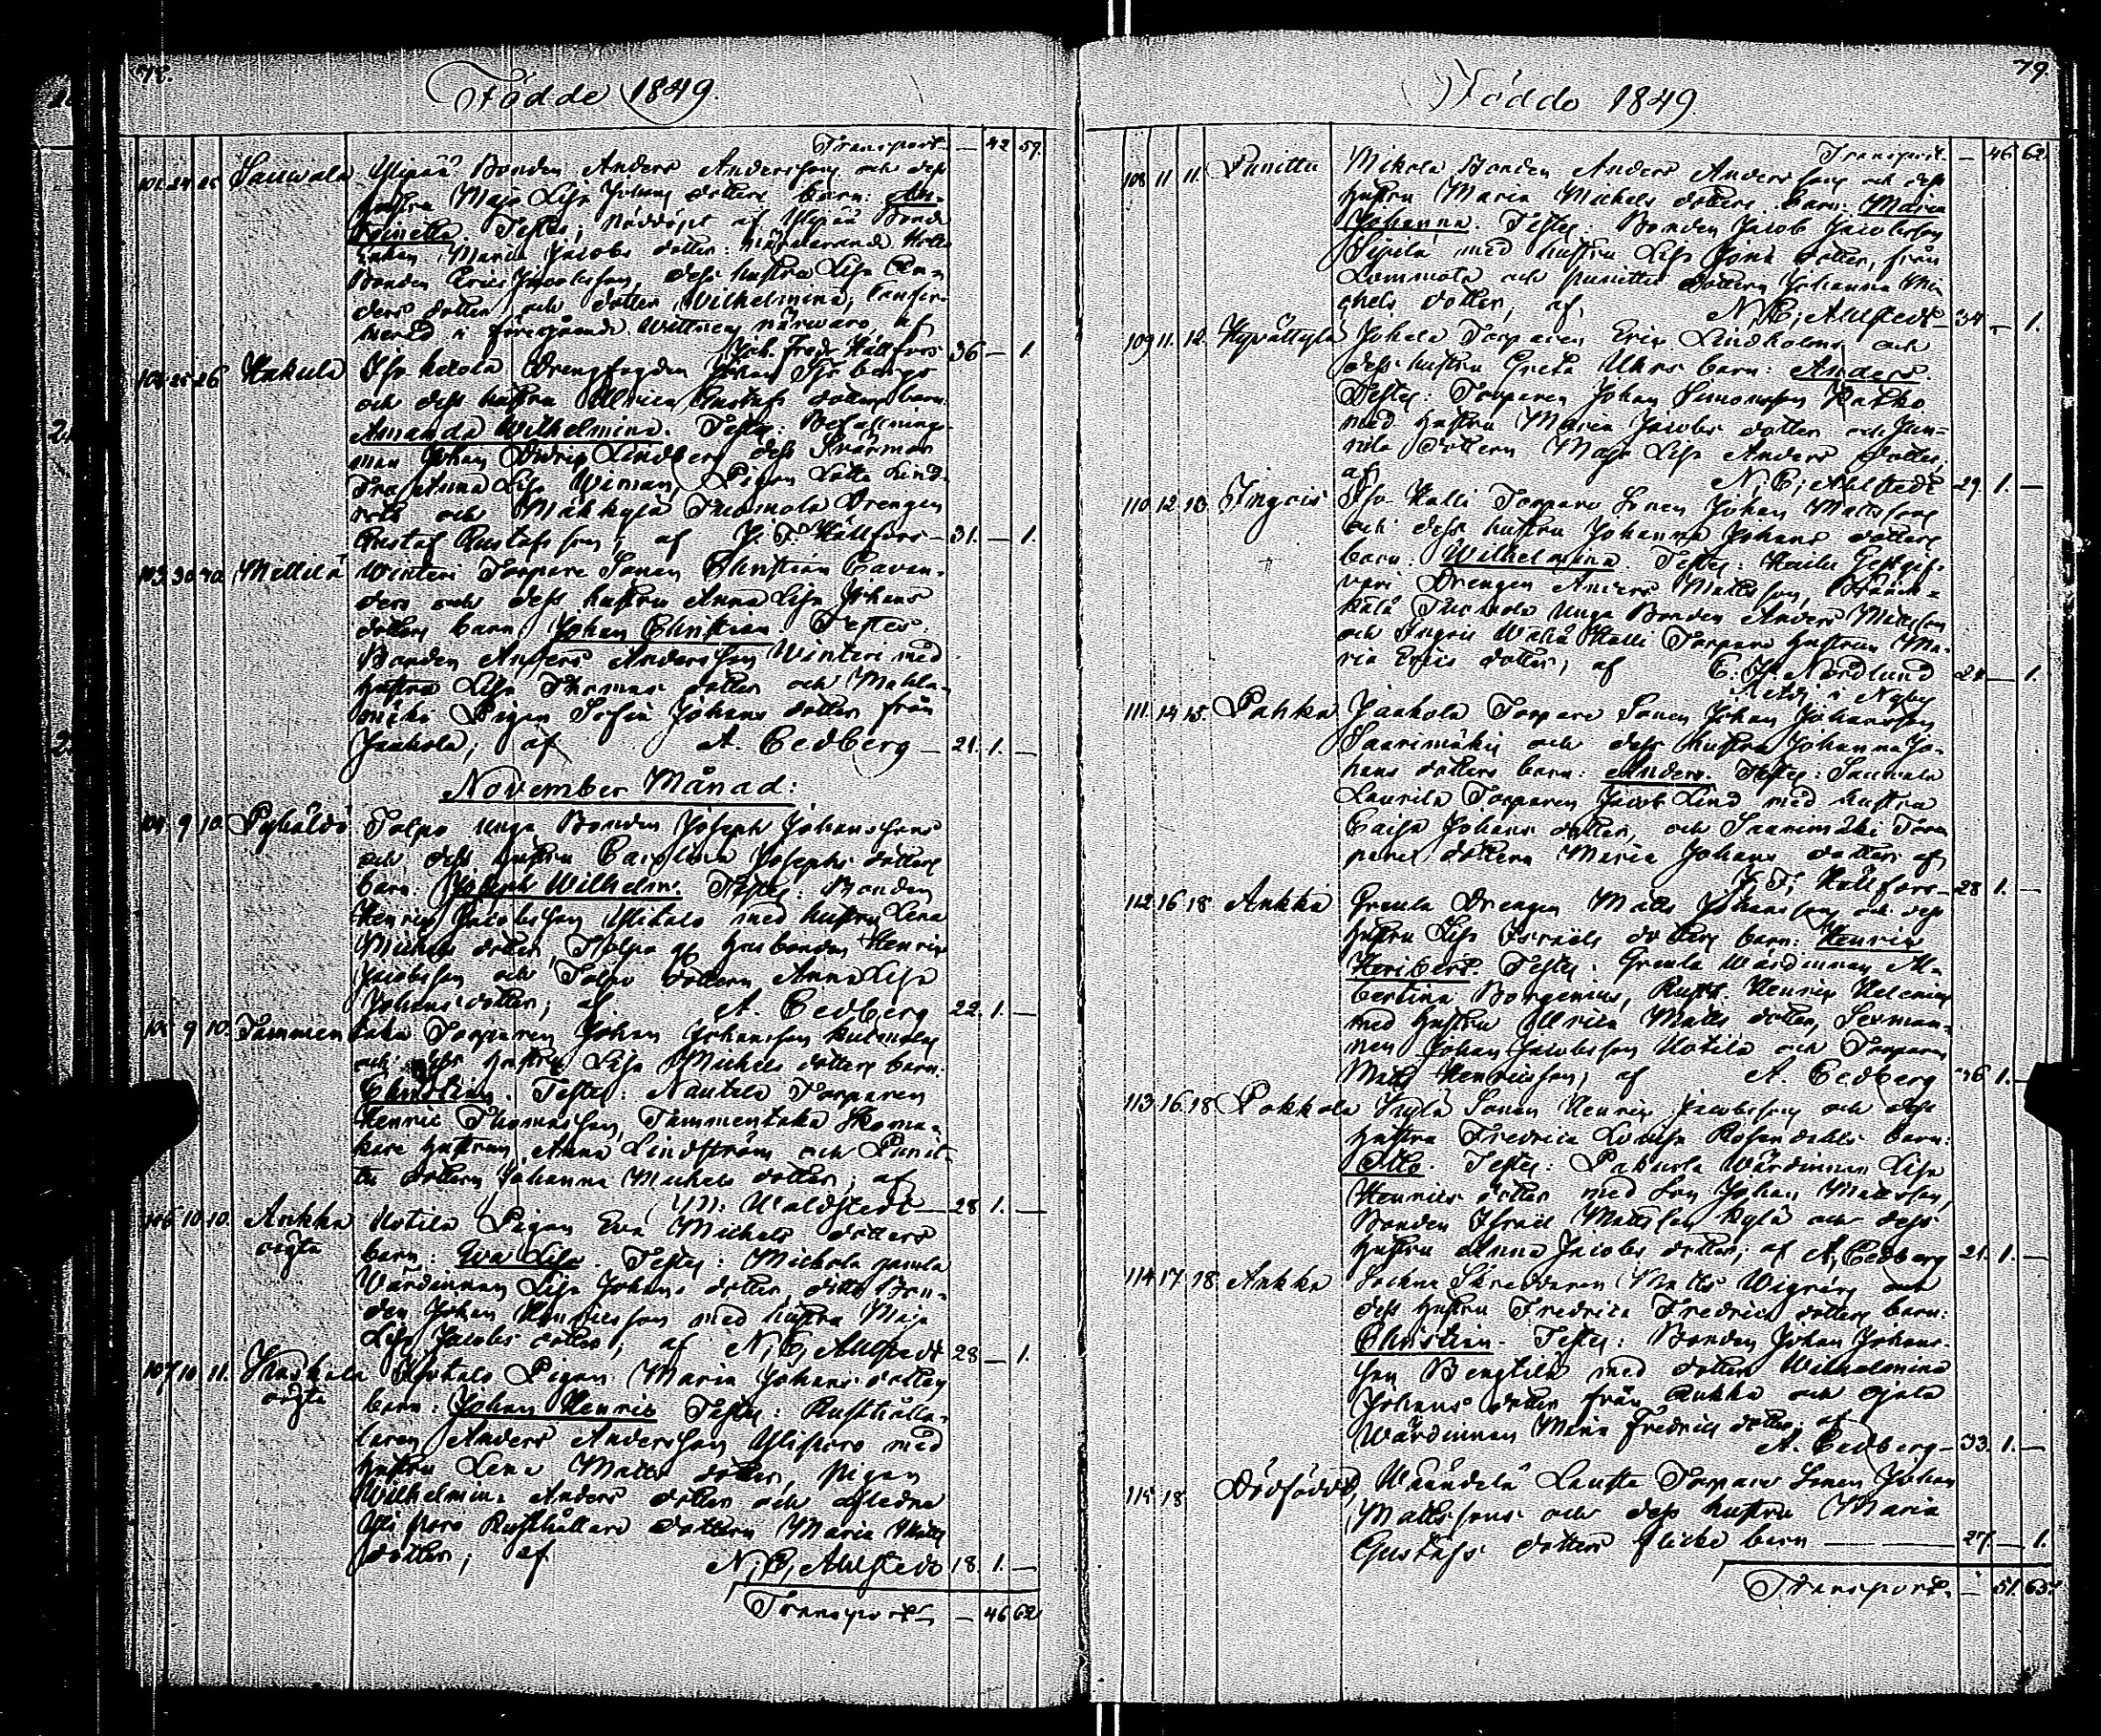 78.
Födde 1849.
Transport — 42 57.
101. 24 25 Sauwala Ylipää Bonden Anders Andersson och dess
hustru Maja Lisa Johans dotters barn: An-
Testes; Nöddöpt af Ylipää Bonde
Enkan Maria Jacobs dotter: närwarande
Bonden Eric Jacobsson, dess hustru Lisa An-
ders dotter och dotter Wilhelmina;
i föregående Wittnens närwaro, af
Joh. Fred. Hällfors 36 — 1.
102 25 26 Hakula Drengfogden Johan Sjöbergs
och dess hustru Ulrica Gustafs dotters barn
Amanda Wilhelmina. Testes: Befallnings-
man Johan Lindberg dess Swärmor
Fru Anna Lisa Wiman, Pigan Lotta Lind-
och Mäkkylä Tuomola Drengen
Gustaf Gustafsson; af J. F. Hällfors — 31. — 1.
103 30 Mellilä Winteri Torpare Sonen Christian Cavan-
ders och dess hustru Anna Lisa Johans
dotters barn Johan Christian. Testes:
Bonden Anders Andersson Winteri med
hustru Lisa Thomas dotter och
mäki Pigan Sofia Johans dotter från
Jaakola; af A. Cedberg — 21. 1. —
November Månad:
104 9 10. Pyhäldö Tolpo unga Bonden Joseph Johanssons
och dess hustru Carolina Josephs dotters
barn: Joseph Wilhelm. Testes: Bonden
Henric Jacobsson Ylitalo med hustru Lena
Michels dotter, Tolpo Husbonden Henric
Jacobsson och Tolpo dottern Anna Lisa
Johans dotter; af A. Cedberg 22. 1. —
105 9 10. Tammen taka Torparen Johan Johansson
och dess hustru Lisa Michels dotters barn:
Christian. Testes: Nautela Torparen
Henric Thomasson, Tammentaka Skoma-
kare hustrun Anna Lindström och Punit-
tu dottern Johanna Michels dotter; af
M. Waldstedt — 28 1. —
106 10 10. Ankka Uotila Pigan Eva Michels dotters
oägta barn: Eva Lisa. Testes: Michola gamla
Wärdinnan Lisa Johans dotter, ditto Bon-
den Johan Henricsson med hustru Maja
Lisa Jacobs dotter, af N. E. Ahlstedt 28 — 1.
107 10 11. Kuskala Pigan Maria Johans dotters
oägta barn: Johan Henric Testes: Rusthålla-
laren Anders Andersson Ylisporo med
hustru Lena Matts dotter, pigan
Wilhelmina Anders dotter och afledne
Rusthållare dottern Maria Matts
dotter; af N. E. Ahlstedt 18. 1. —
Transport — 46 62
79.
Födde 1849.
Transport — 46 62
108 11 11. Punittu Mikola Bonden Anders Andersson och dess
hustru Maria Michels dotters barn: Maria
Johanna. Testes: Bonden Jacob Jacobsson
Sipilä med hustru Lisa dotter, från
och punittu dottern Johanna Mi-
chels dotter, af, N. E. Ahlstedt — 34 — 1.
109 11. 12. Hypöltylä Juhala Torparen Eric Lindholms och
dess hustru Greta barn: Anders.
Testes: Torparen Johan Simonsson
med hustru Maria Jacobs dotter och
dottern Maja Lisa Anders dotter,
af N. E. Ahlstedt 29. 1. —
110 12. 13. Ingois Halli Torpare Sonen Johan Mattsson
och dess hustru Johanna Johans dotters
barn: Wilhelmina. Testes: Gestgif-
veri Drengen Anders Mattsson,
unga Bonden Anders Mattsson
och Ingois Halli Torpare hustrun Ma-
ria Erics dotter, af Nordlund 24 — 1.
Adj. i Nyby
111. 14 15. Pahka Jaakola Torpare Sonen Johan Johansson
Saarimäki och dess hustru Johanna Jo-
hans dotters barn: Anders. Testes: Sauwala
Laurila Torparen Jacob Lind med hustru
Caisa Johans dotter, och Saarimäki Torp
pare dottern Maria Johans dotter af
J. F. Hällfors — 28 1. —
112. 16. 18 Ankka Greula Drengen Matts Johansson och dess
hustru Lisa Israels dotters barn: Henric
Heribert. Testes: Greula Wärdinnan Al-
bertina Borgenius, Rusth. Henric Helenius
med hustru Ulrica Matts dotter, Sexman-
nen Johan Jacobsson Uotila och Torparen
Matts Henricsson; af A. Cedberg 36 1. —
113. 16 18 Pokkola Sonen Henric Jacobsson och dess
hustru Fredrica Lovisa Rosendahls barn:
Otto. Testes: Pakurla Wärdinnan Lisa
Henrics dotter med Son Johan Mattsson,
Bonden Israel Mattsson Kylä och dess
hustru Anna Jacobs dotter; af A. Cedberg 21. 1. —
114 17. 18 Ankka Sockne Skreddaren Matts Wigrén och
dess hustru Fredrica Fredrics dotters barn:
Christian. Testes: Bonden Johan Johans-
son Bengtilä med dotter Wilhelmina
Johans dotter från Ankka och Ojala
Wärdinnan Maria Fredrics dotter; af
A. Cedberg — 33. 1. —
115 18 Dödfödde, Lausta Torpare Sonen Johan
Mattssons och dess hustru Maria
Gustafs dotters flicke barn — 27. — 1.
Transport — 51. 65.